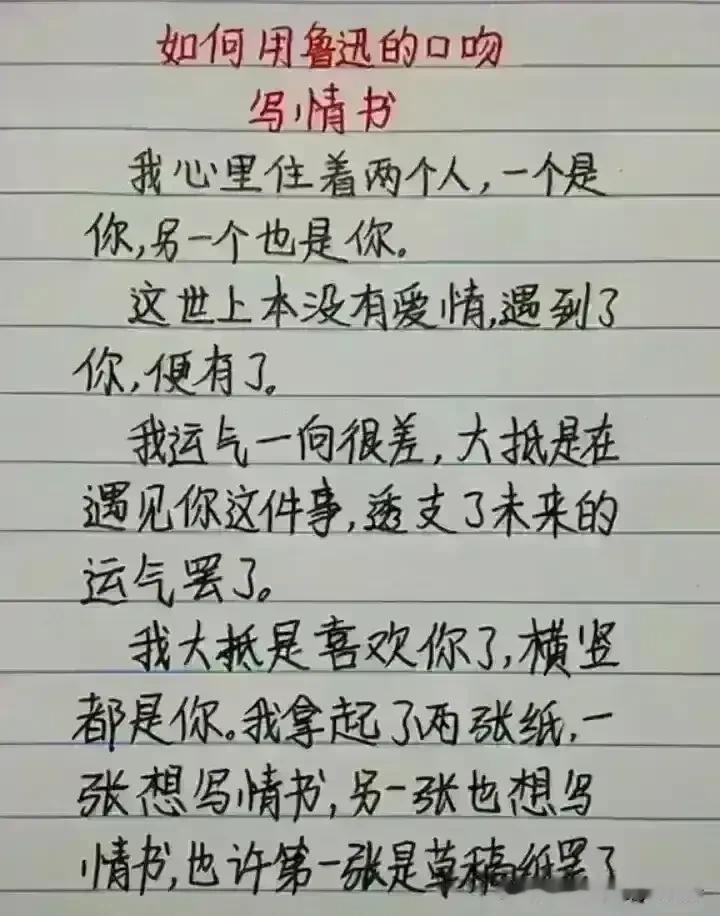 如何用鲁迅的口吻
写情书
我心里住着两个人,一个是
你,另一个也是你。
这世上本没有爱情,遇到了
你,便有了。
我运气一向很差,大抵是在
遇见你这件事,透支了未来的
运气罢了。
我大抵是喜欢你了,横竖
都是你。我拿起了两张纸,一
张想写情书,另一张也想写
情书,也许第一张是草稿纸罢了